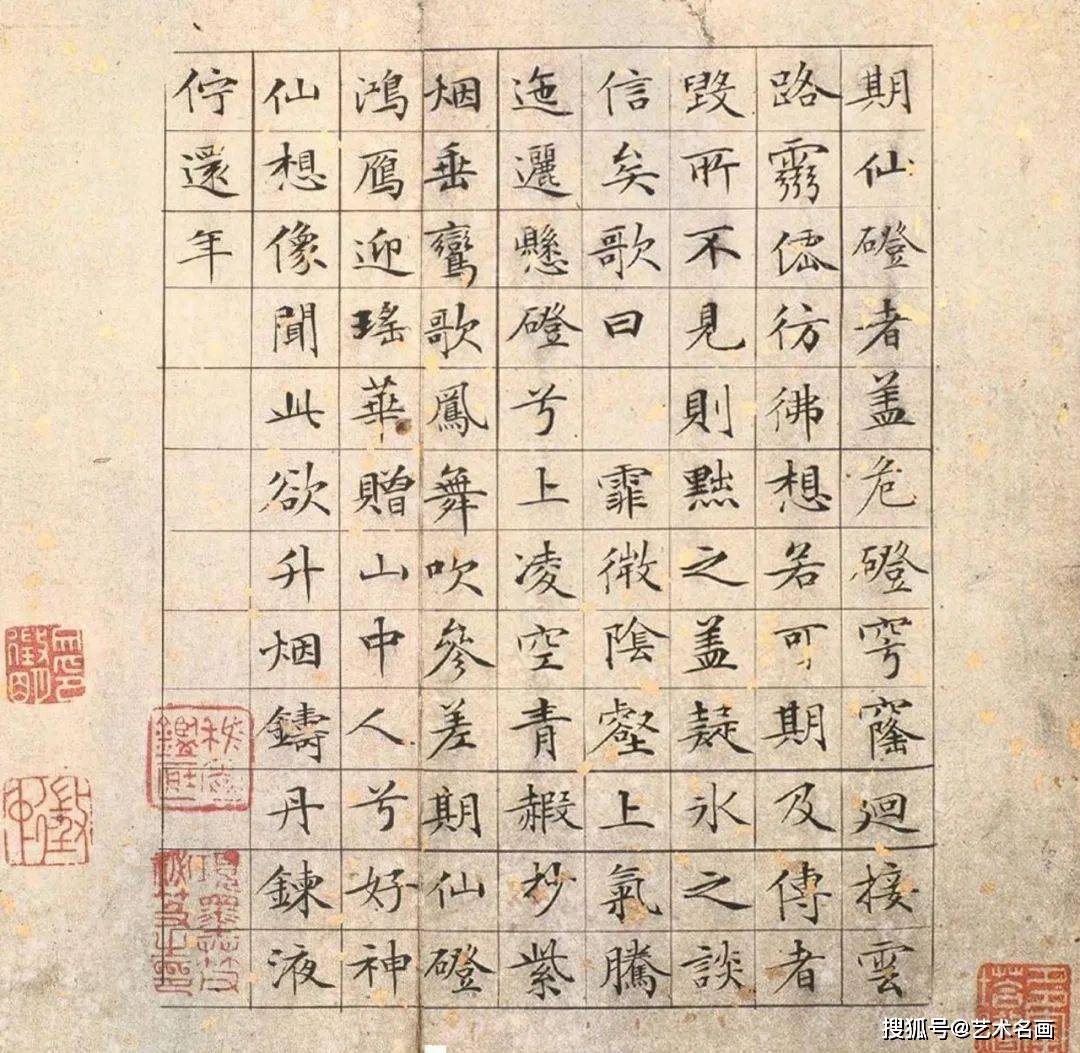 期仙磴者盖危磴穹窿迴接雲
路靈僊彷彿想若可期及傳者
毀所不見則黜之盖疑氷之談
信矣歌曰 霏微陰壑上氣騰
迤邐懸磴兮上凌空青赮杪紫
烟垂鸞歌鳳舞吹參差期仙磴
鴻鴈迎瑤華贈山中人兮好神
仙想像聞此欲升烟鑄丹鍊液
佇還年
搜狐号@艺术名画